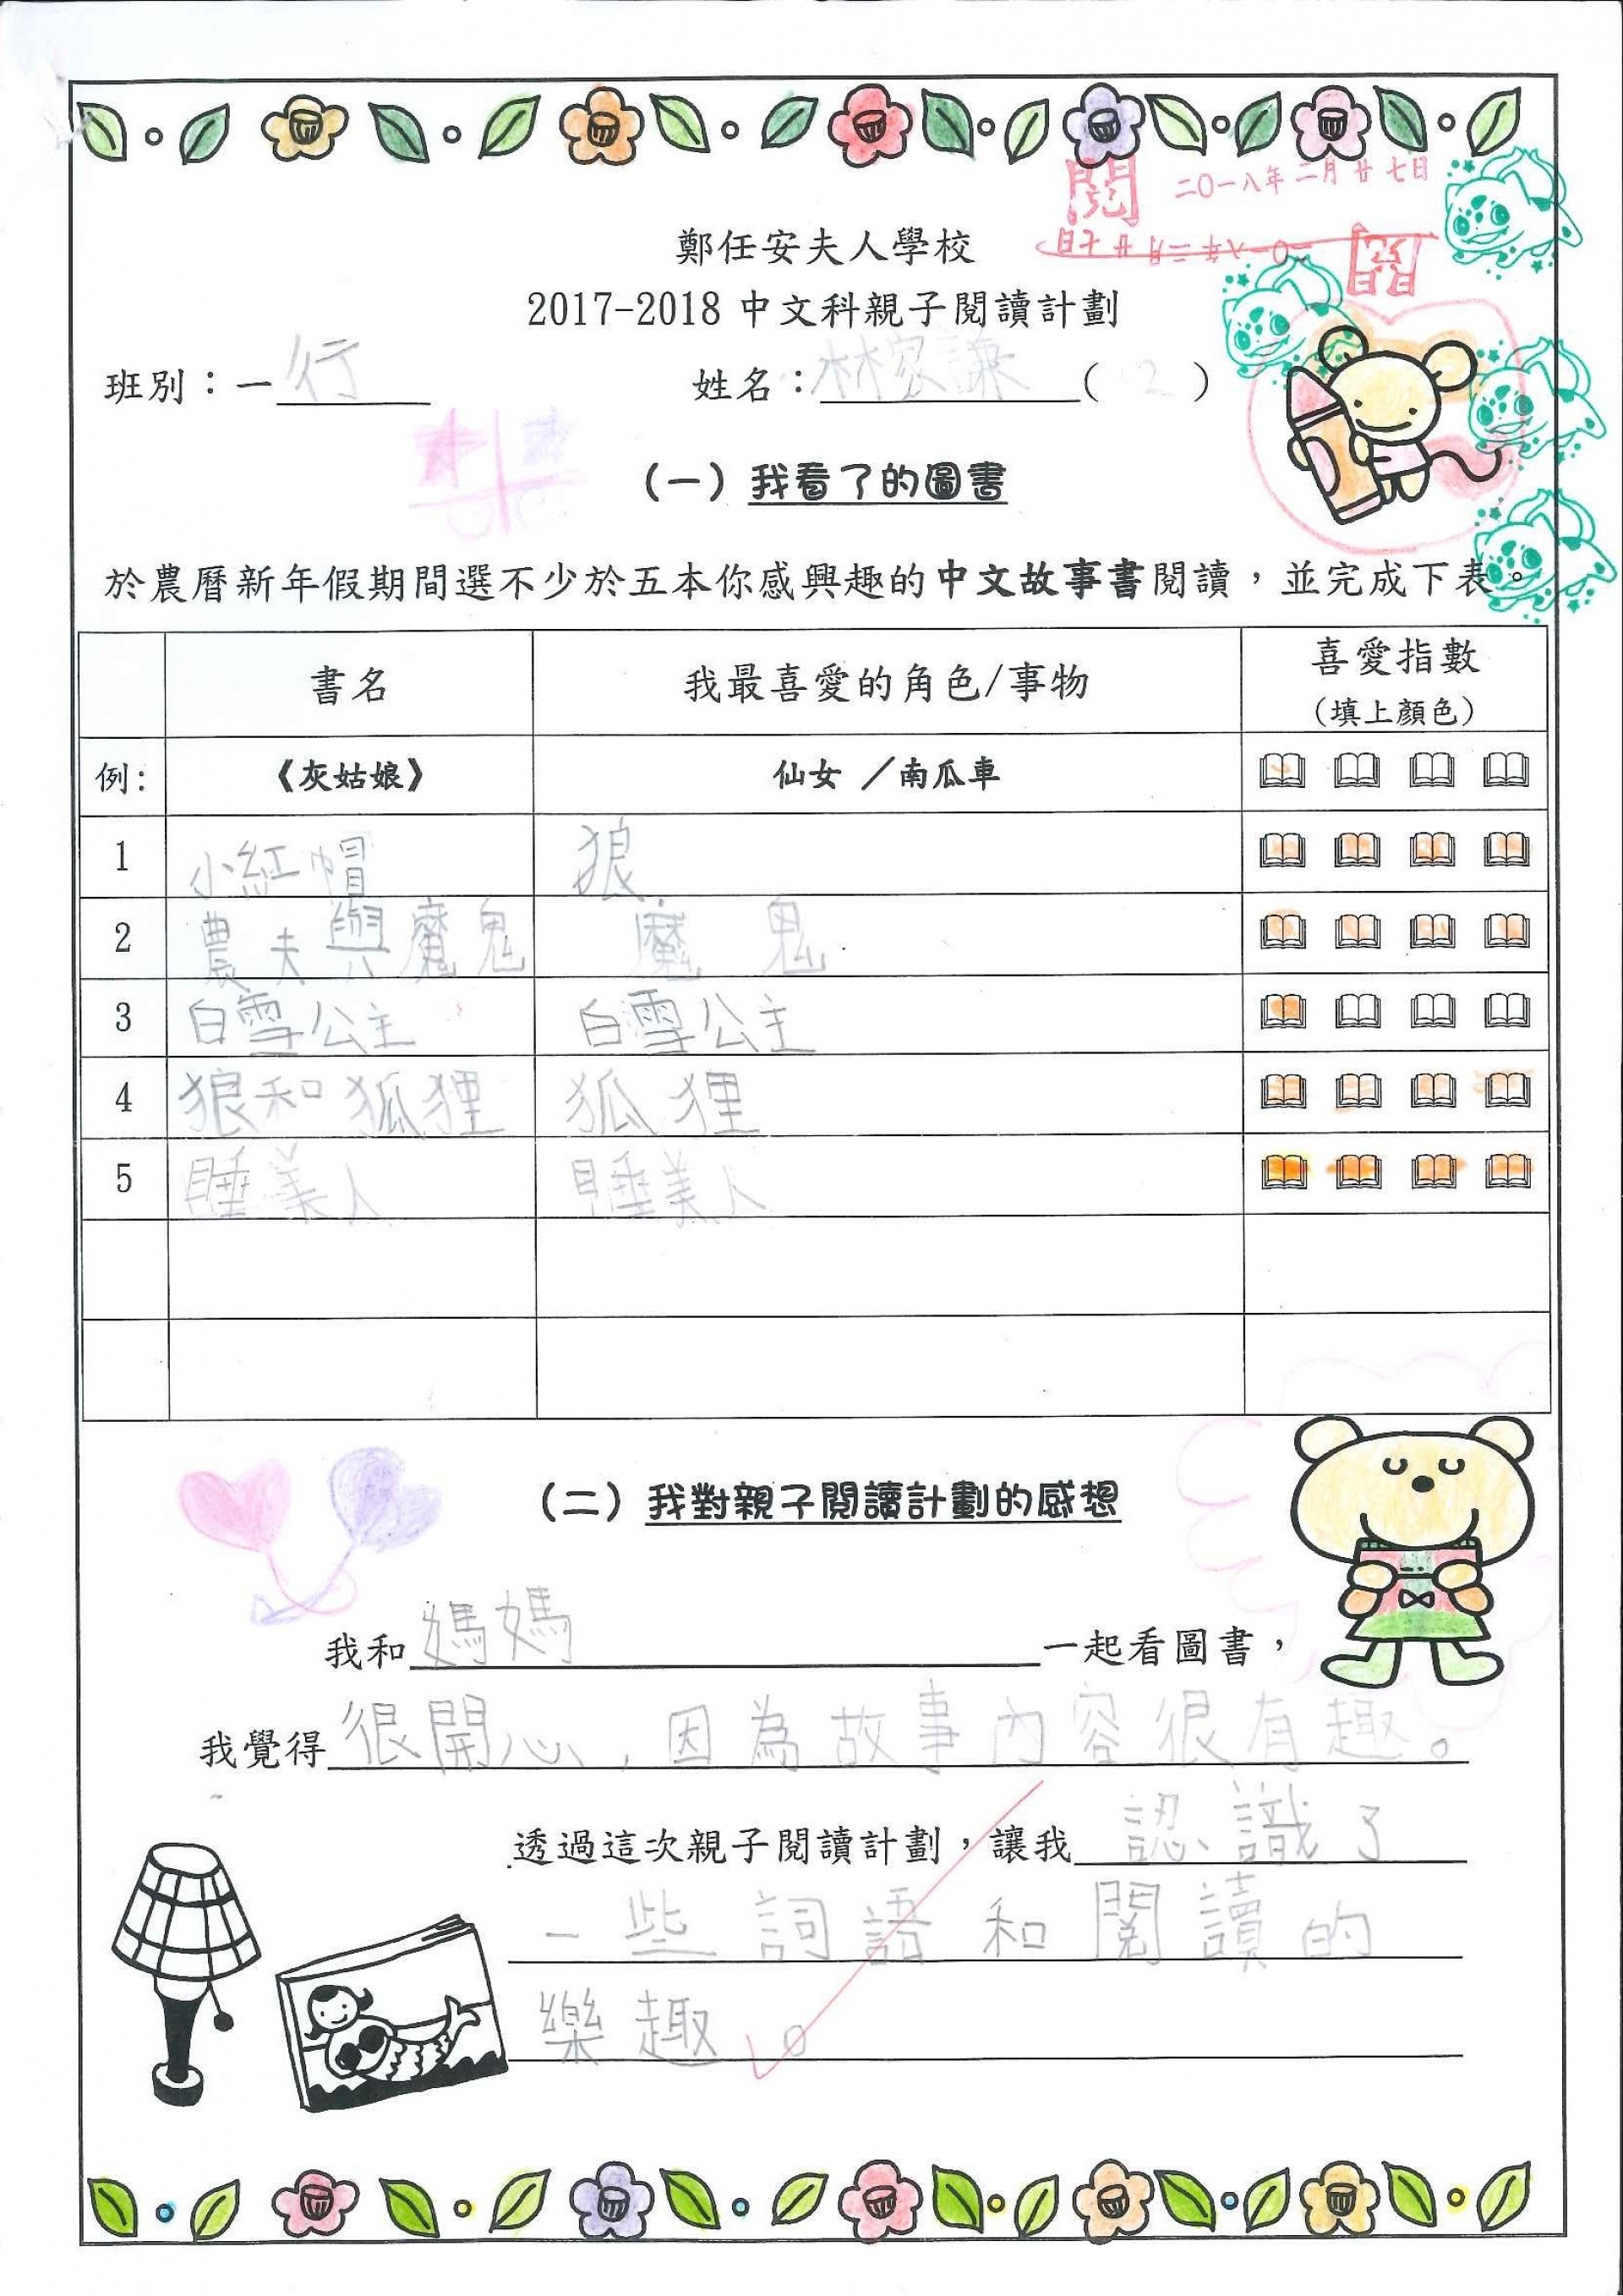 閱 二〇一八年二月廿七日
二〇一八年二月廿七日 閱
鄭任安夫人學校
2017-2018 中文科親子閱讀計劃
班別：一行 姓名：林家謙（2）
（一）我看了的圖書
於農曆新年假期間選不少於五本你感興趣的中文故事書閱讀，並完成下表。
書名 我最喜愛的角色/事物 喜愛指數
（填上顏色）
例： 《灰姑娘》 仙女 ／南瓜車
1 小紅帽 狼
2 農夫與魔鬼 魔鬼
3 白雪公主 白雪公主
4 狼和狐狸 狐狸
5 睡美人 睡美人
（二）我對親子閱讀計劃的感想
我和媽媽一起看圖書，
我覺得很開心，因為故事內容很有趣。
透過這次親子閱讀計劃，讓我認識了
一些詞語和閱讀的
樂趣。